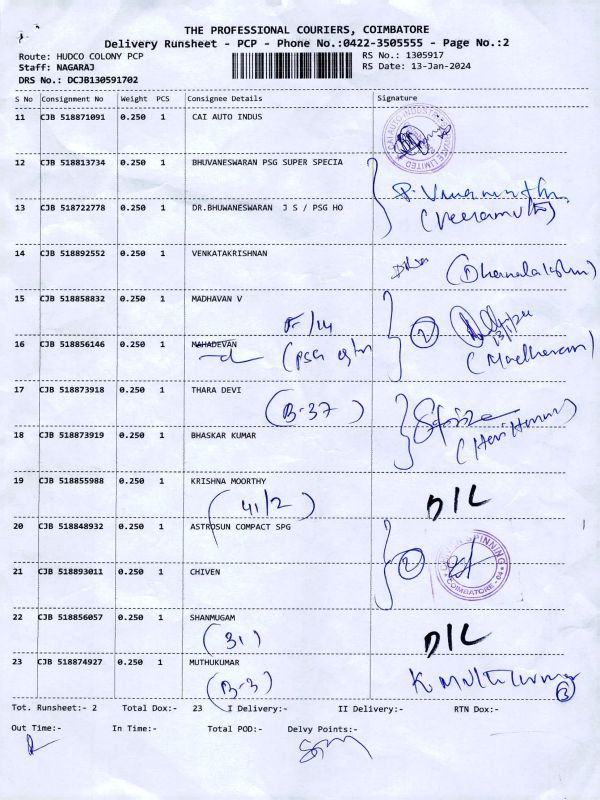 THE PROFESSIONAL COURIERS, COIMBATORE
Delivery Runsheet - PCP - Phone No.:0422-3505555 - Page No.:2
Route: HUDCO COLONY PCP RS No.: 1305917
Staff: NAGARAJ RS Date: 13-Jan-2024
DRS No.: DCJB130591702
S No Consignment No Weight PCS Consignee Details Signature
11 CJB 518871091 0.250 1 CAI AUTO INDUS
12 CJB 518813734 0.250 1 BHUVANESWARAN PSG SUPER SPECIA
13 CJB 518722778 0.250 1 DR.BHUWANESWARAN J S / PSG HO
14 CJB 518892552 0.250 1 VENKATAKRISHNAN
15 CJB 518858832 0.250 1 MADHAVAN V
2
16 CJB 518856146 0.250 1 MAHADEVAN
(Madhavan)
17 CJB 518873918 0.250 1 THARA DEVI
(B-37)
18 CJB 518873919 0.250 1 BHASKAR KUMAR
19 CJB 518855988 0.250 1 KRISHNA MOORTHY
(41/2) D/L
20 CJB 518848932 0.250 1 ASTROSUN COMPACT SPG
2
21 CJB 518893011 0.250 1 CHIVEN
COIMBATORE - 04
22 CJB 518856057 0.250 1 SHANMUGAM
(31) D/L
23 CJB 518874927 0.250 1 MUTHUKUMAR
(B-3)
Tot. Runsheet:- 2 Total Dox:- 23 I Delivery:- II Delivery:- RTN Dox:-
Out Time:- In Time:- Total POD:- Delvy Points:-